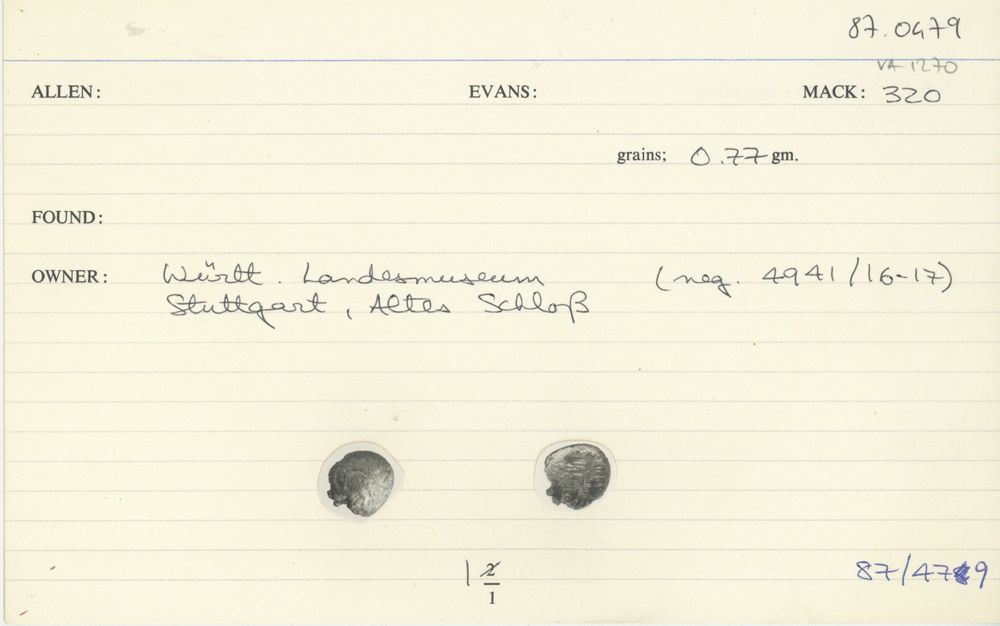 87.0479
VA-1270
ALLEN: EVANS: MACK: 320
grains; 0.77 gm.
FOUND:
OWNER: Württ. Landesmuseum (neg. 4941/16-17)
Stuttgart, Altes Schloß
1 2
1
87/479